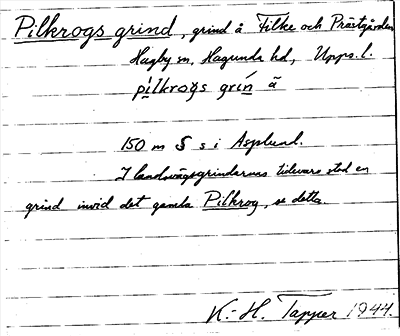 Pilkrogs grind, grind å Filke och Prästgården
Hagby sn, Hagunda hd, Upps. l.
pilkrogs grin ä
150 m S s i Asplund.
I landsvägsgrindarnas tidevarv stod en
grind invid det gamla Pilkrog, se detta.
K.-H. Tapper 1944.